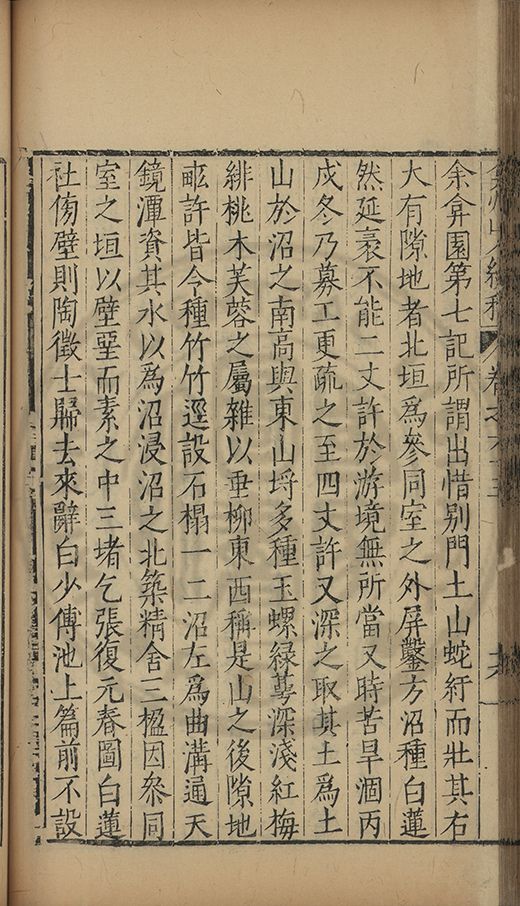 弇州山人續稿 卷之六十五 十六
余弇園第七記所謂出惜别門土山蛇紆而壯其右
大有隙地者北垣爲參同室之外屏鑿方沼種白蓮
然延袤不能二丈許於游境無所當又時苦旱涸丙
戌冬乃募工更疏之至四丈許又深之取其土爲土
山於沼之南高與東山埒多種玉螺緑萼深淺紅梅
緋桃木芙蓉之屬雜以垂柳東西稱是山之後隙地
畝許皆令種竹竹逕設石榻一二沼左爲曲溝通天
鏡潭資其水以爲沼浸沼之北築精舍三楹因叅同
室之垣以壁堊而素之中三堵乞張復元春圖白蓮
社傍壁則陶徵士歸去來辭白少傅池上篇前不設